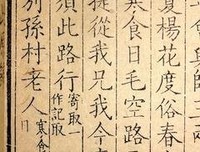 師三
夏楊花度俗春
寒食日毛空路
從我兄我今
須此路行寄取一
作記取
別孫村老人寒食